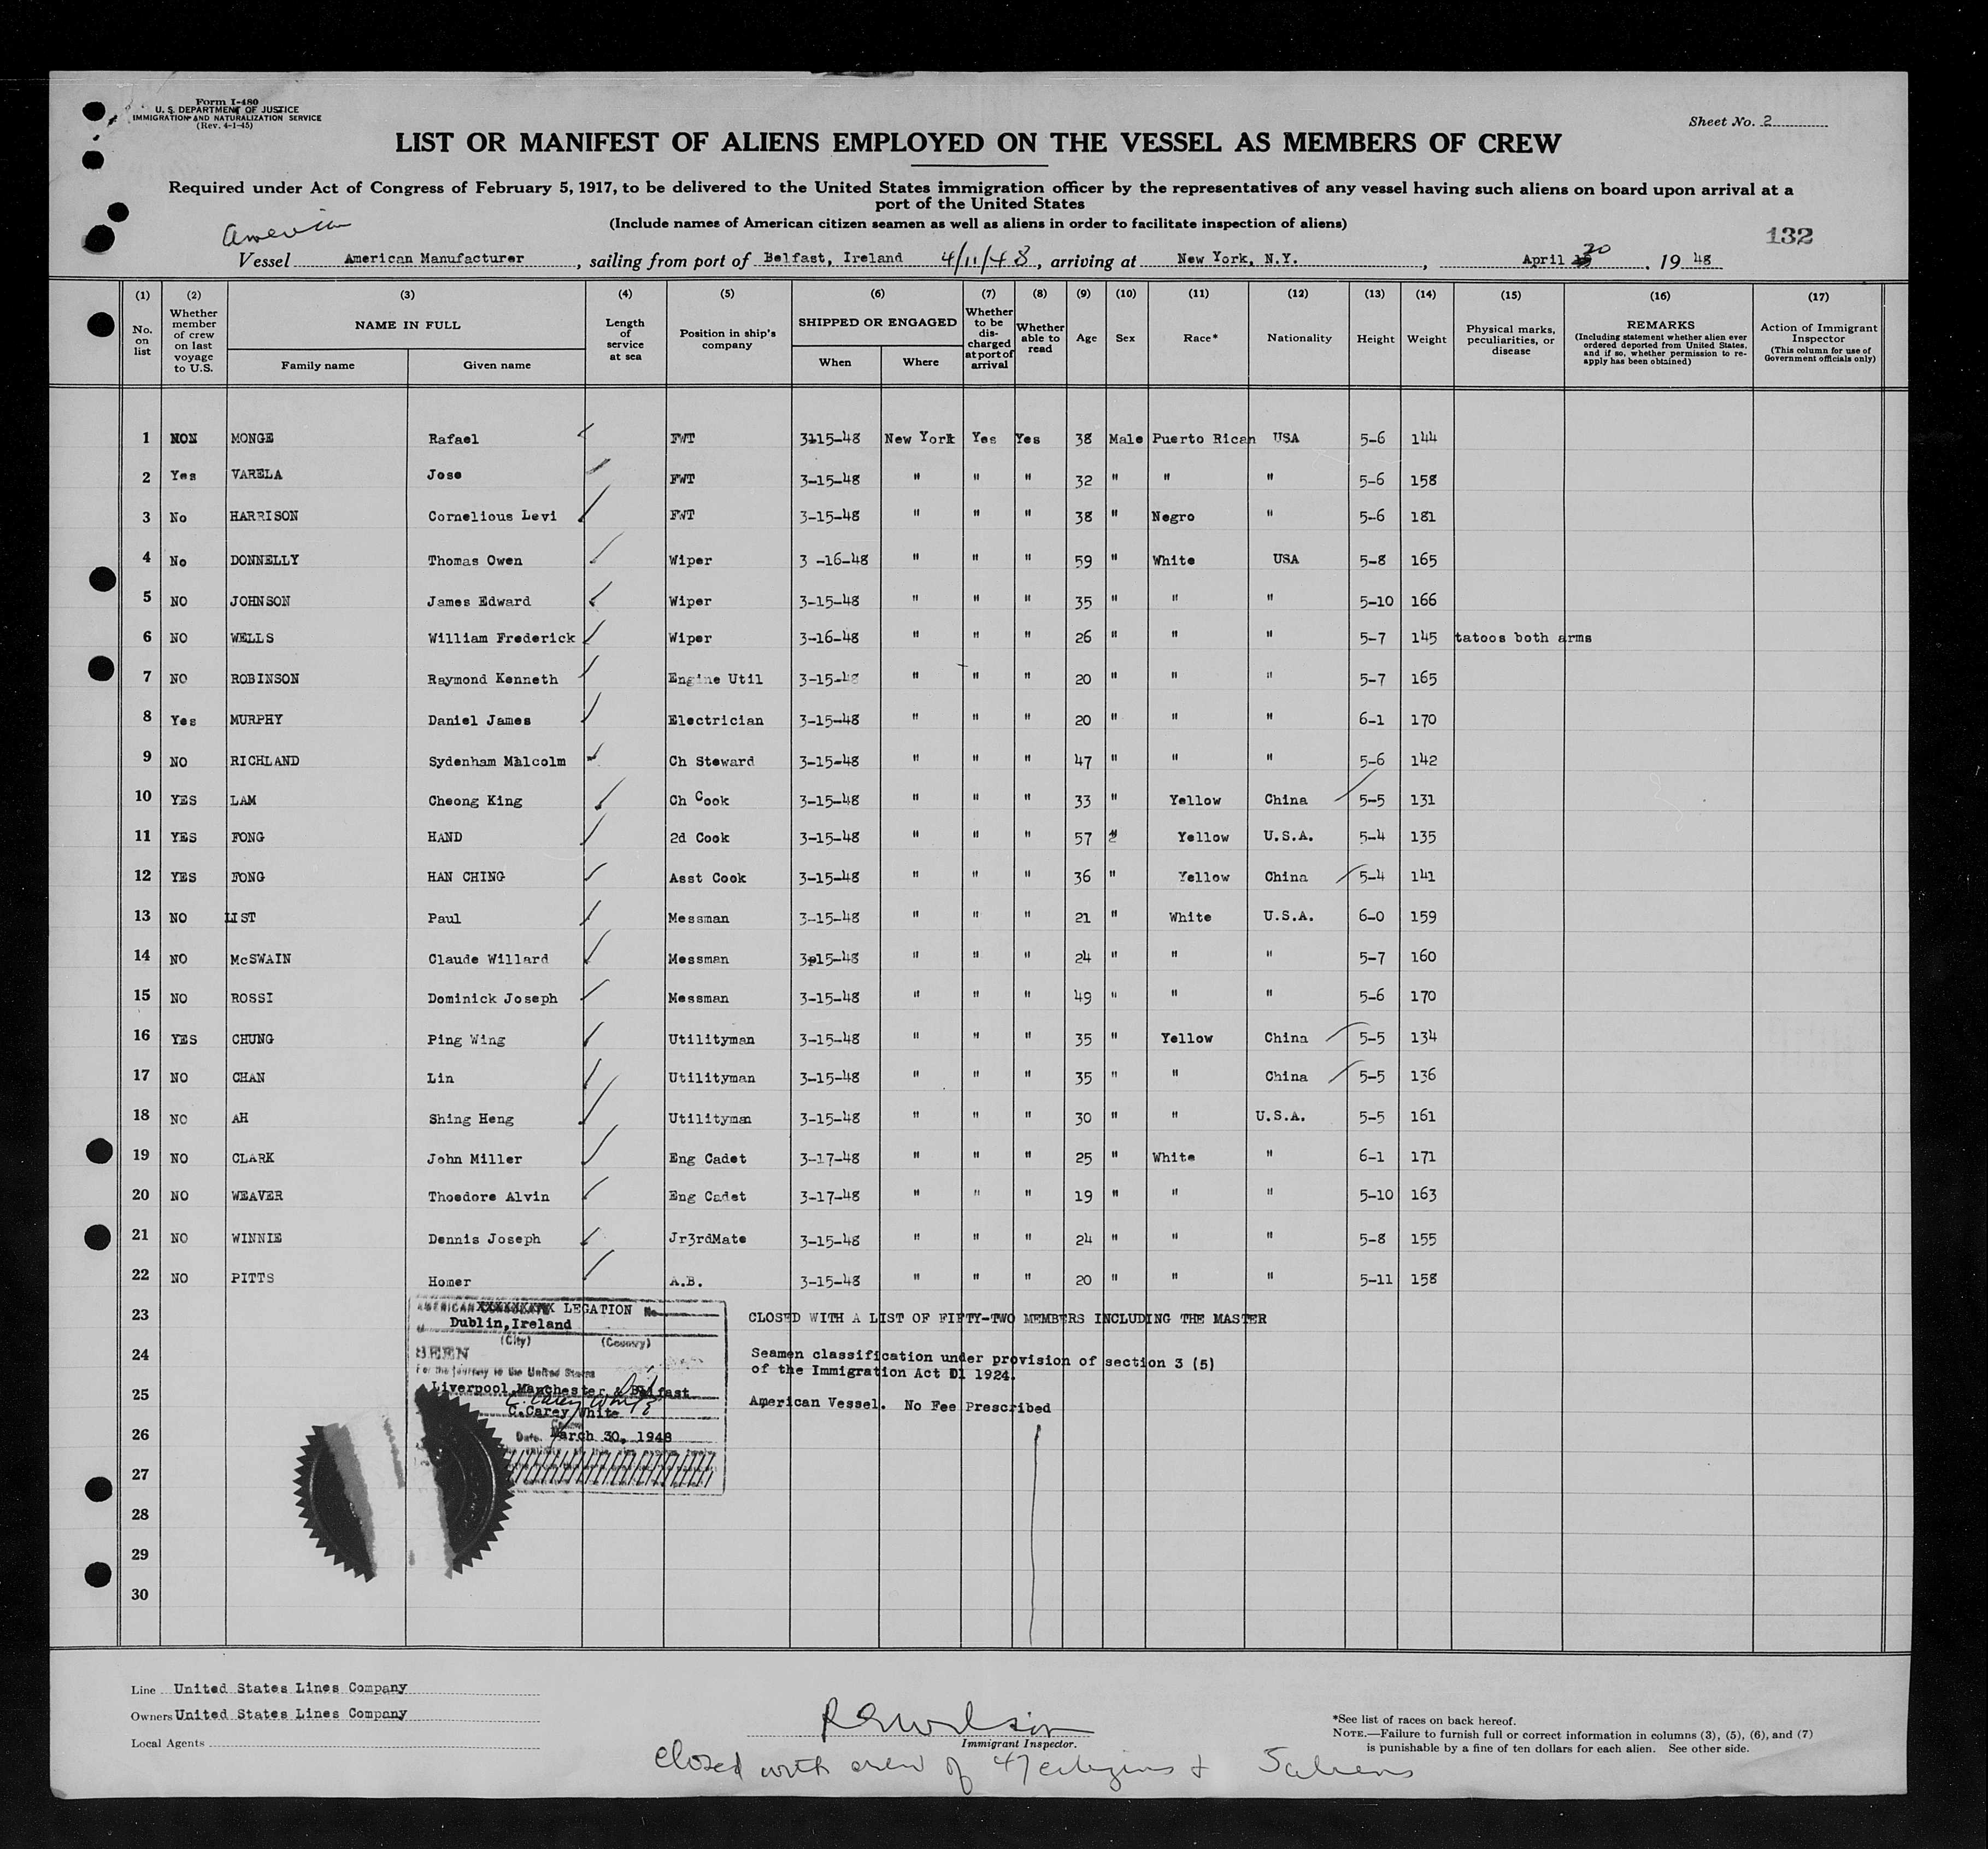 Form I-480
U. S. DEPARTMENT OF JUSTICE
IMMIGRATION AND NATURALIZATION SERVICE
(Rev. 4-1-45)
Sheet No. 2
LIST OR MANIFEST OF ALIENS EMPLOYED ON THE VESSEL AS MEMBERS OF CREW
Required under Act of Congress of February 5, 1917, to be delivered to the United States immigration officer by the representatives of any vessel having such aliens on board upon arrival at a
port of the United States
(Include names of American citizen seamen as well as aliens in order to facilitate inspection of aliens)
American
132
Vessel American Manufacturer, sailing from port of Belfast, Ireland 4/11/48, arriving at New York, N.Y., April 20, 1948
(1) (2) (3) (4) (5) (6) (7) (8) (9) (10) (11) (12) (13) (14) (15) (16) (17)
No. on list
Whether member of crew on last voyage to U.S.
NAME IN FULL
Family name
Given name
Length of service at sea
Position in ship's company
SHIPPED OR ENGAGED
When
Where
Whether to be discharged at port of arrival
Whether able to read
Age
Sex
Race*
Nationality
Height
Weight
Physical marks, peculiarities, or disease
REMARKS
(Including statement whether alien ever ordered deported from United States, and if so, whether permission to re-apply has been obtained)
Action of Immigrant Inspector
(This column for use of Government officials only)
1 MONGE Rafael FWT 3-15-48 New York Yes Yes 38 Male Puerto Rican USA 5-6 144
2 Yes VARELA Jose FWT 3-15-48 " " " 32 " " " 5-6 158
3 No HARRISON Cornelious Levi FWT 3-15-48 " " " 38 " Negro " 5-6 181
4 No DONNELLY Thomas Owen Wiper 3 -16-48 " " " 59 " White USA 5-8 165
5 NO JOHNSON James Edward Wiper 3-15-48 " " " 35 " " " 5-10 166
6 NO WELLS William Frederick Wiper 3-16-48 " " " 26 " " " 5-7 145 tatoos both arms
7 NO ROBINSON Raymond Kenneth Engine Util 3-15-48 " " " 20 " " " 5-7 165
8 Yes MURPHY Daniel James Electrician 3-15-48 " " " 20 " " " 6-1 170
9 NO RICHLAND Sydenham Malcolm Ch Steward 3-15-48 " " " 47 " " " 5-6 142
10 YES LAM Cheong King Ch Cook 3-15-48 " " " 33 " Yellow China 5-5 131
11 YES FONG HAND 2d Cook 3-15-48 " " " 57 " Yellow U.S.A. 5-4 135
12 YES FONG HAN CHING Asst Cook 3-15-48 " " " 36 " Yellow China 5-4 141
13 NO LIST Paul Messman 3-15-48 " " " 21 " White U.S.A. 6-0 159
14 NO McSWAIN Claude Willard Messman 3-15-48 " " " 24 " " " 5-7 160
15 NO ROSSI Dominick Joseph Messman 3-15-48 " " " 49 " " " 5-6 170
16 YES CHUNG Ping Wing Utilityman 3-15-48 " " " 35 " Yellow China 5-5 134
17 NO CHAN Lin Utilityman 3-15-48 " " " 35 " " China 5-5 136
18 NO AH Shing Heng Utilityman 3-15-48 " " " 30 " " U.S.A. 5-5 161
19 NO CLARK John Miller Eng Cadet 3-17-48 " " " 25 " White " 6-1 171
20 NO WEAVER Thoedore Alvin Eng Cadet 3-17-48 " " " 19 " " " 5-10 163
21 NO WINNIE Dennis Joseph Jr3rdMate 3-15-48 " " " 24 " " " 5-8 155
22 NO PITTS Homer A.B. 3-15-48 " " " 20 " " " 5-11 158
23
24
25
26
27
28
29
30
AMERICAN XXXXXXXXX LEGATION No
Dublin, Ireland
(City) (Country)
SEEN
For the journey to the United States
Liverpool Manchester & Belfast
C. Carey White
C.Carey White
Date. March 30, 1948
CLOSED WITH A LIST OF FIFTY-TWO MEMBERS INCLUDING THE MASTER
Seamen classification under provision of section 3 (5)
of the Immigration Act Df 1924.
American Vessel. No Fee Prescribed
Line United States Lines Company
Owners United States Lines Company
Local Agents
Immigrant Inspector.
closed with crew of 47 citizens & 5 aliens
*See list of races on back hereof.
NOTE.—Failure to furnish full or correct information in columns (3), (5), (6), and (7)
is punishable by a fine of ten dollars for each alien. See other side.